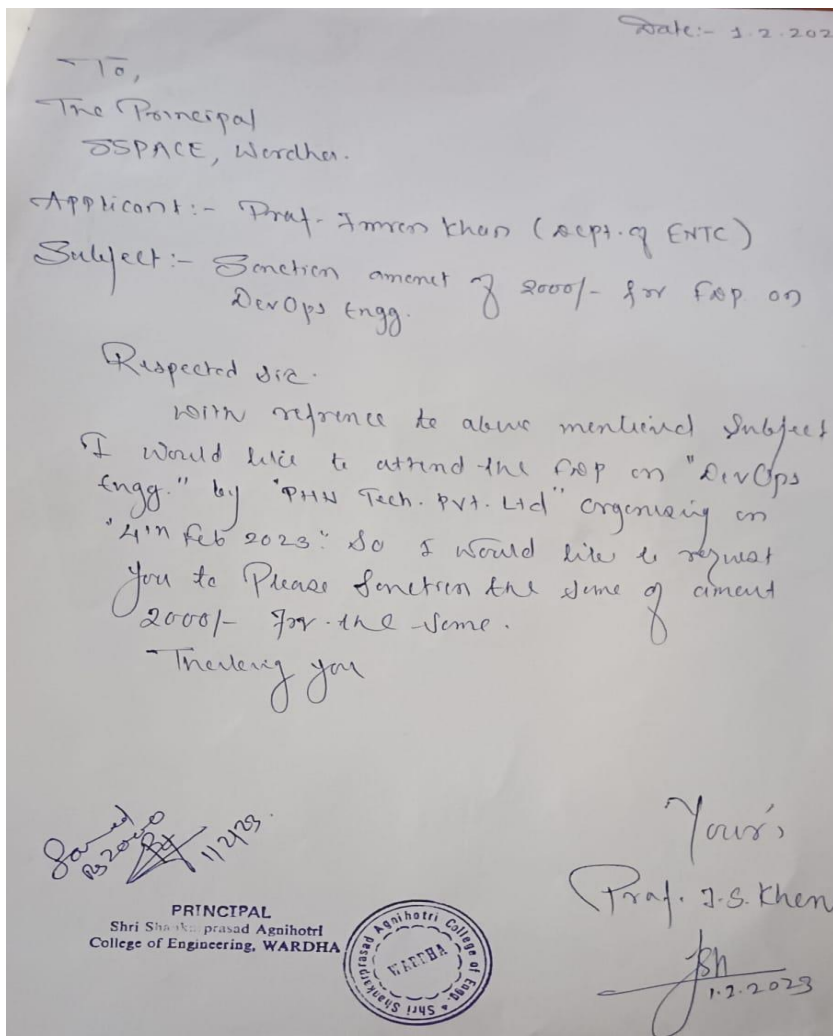 Date:- 1.2.202
To,
The Principal
SSPACE, Wardha.
Applicant:- Prof. Imran Khan (Dept. of ENTC)
Subject:- Sanction amount of 2000/- for FDP on
DevOps Engg.
Respected Sir.
With refrence to above mentioned Subject
I would like to attend the FDP on "DevOps
Engg." by "PHN Tech. Pvt. Ltd" organising on
"4th Feb 2023". So I would like to request
you to Please Sanction the same of amount
2000/- For the same.
Thanking you
Rs 2000
1/2/23.
Your's
Prof. I.S. Khan
1.2.2023
PRINCIPAL
Shri Shankarprasad Agnihotri
College of Engineering, WARDHA
Shri Shankarprasad Agnihotri College of Engg.
WARDHA